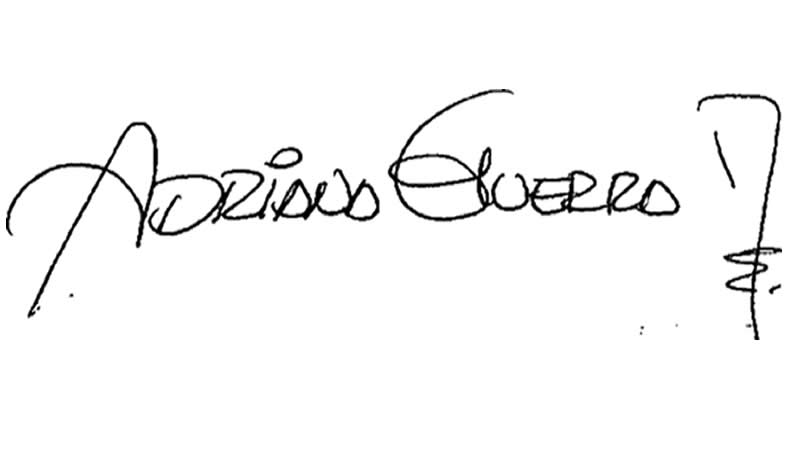 Adriano Guerra